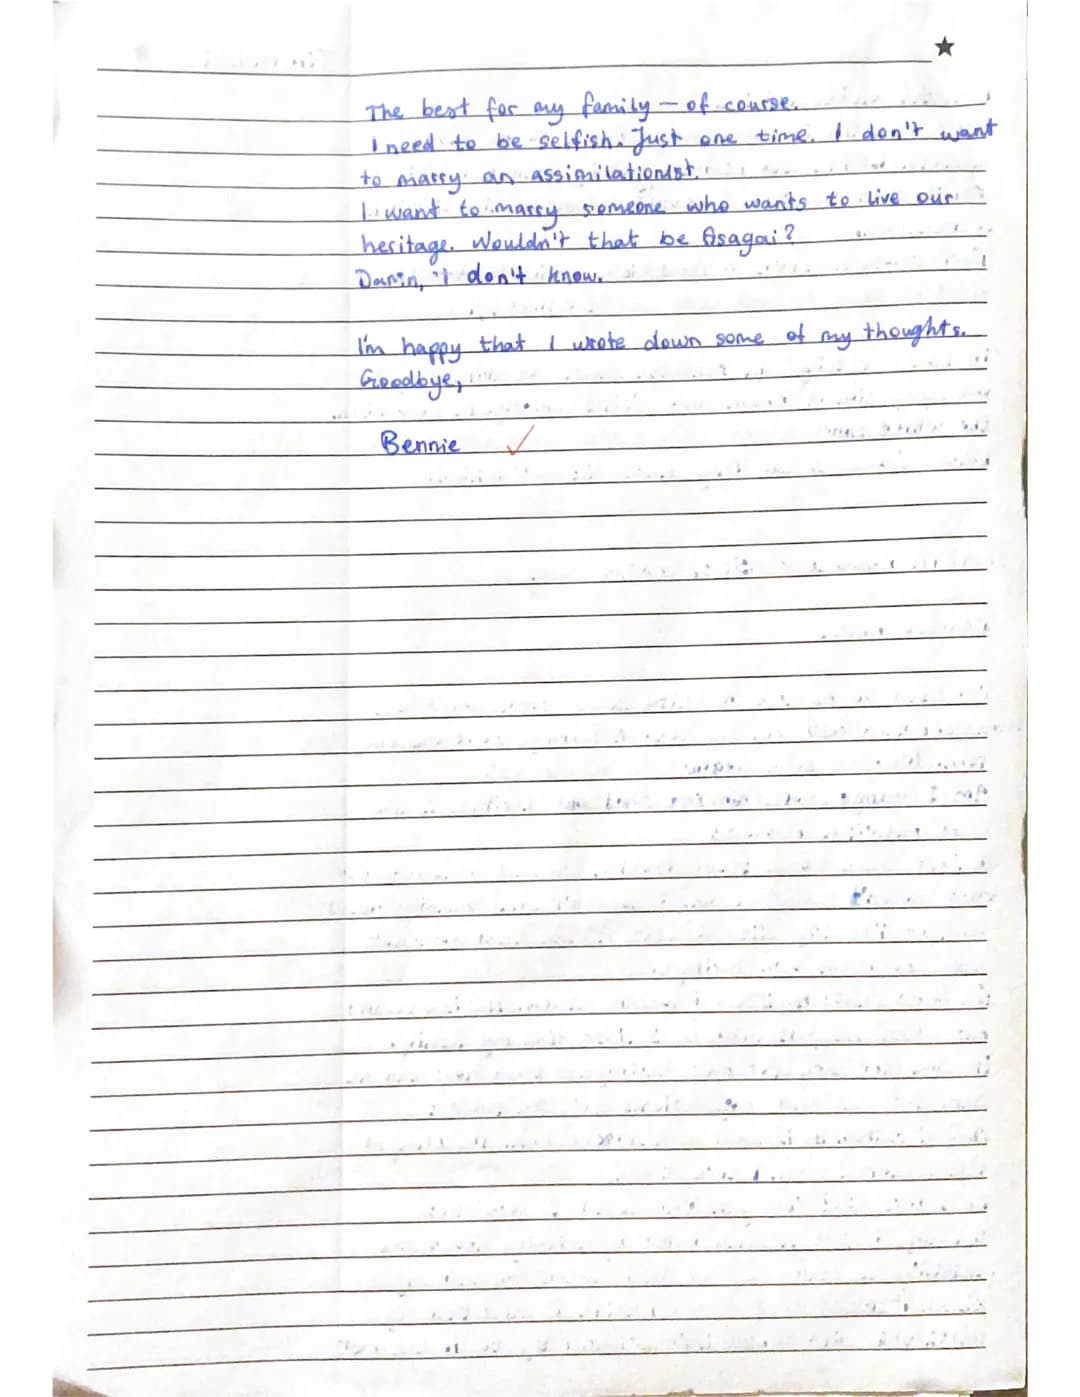 The best for my family – of course.
I need to be selfish. Just one time. I don't want
to marry an assimilationist.
I want to marry someone who wants to live our
heritage. Wouldn't that be Asagai?
Damn, I don't know.
I'm happy that I wrote down some of my thoughts.
Goodbye,
Bennie